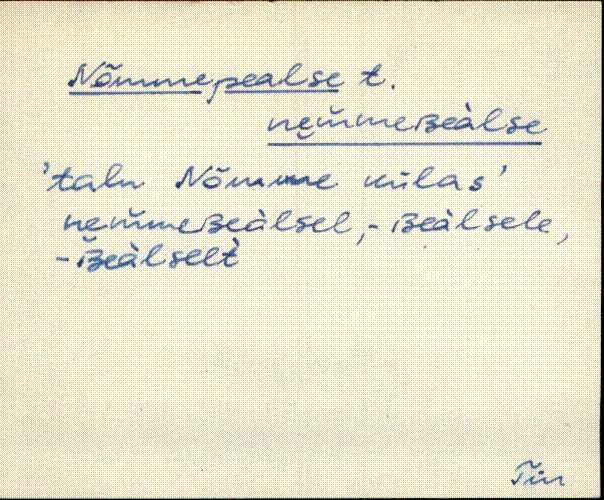 Nõmmepealse t.
ne̮m̆meʙeàlse
'talu Nõmme külas'
ne̮m̆meʙeàlsel, -ʙeàlsele,
-ʙeàlselt̀